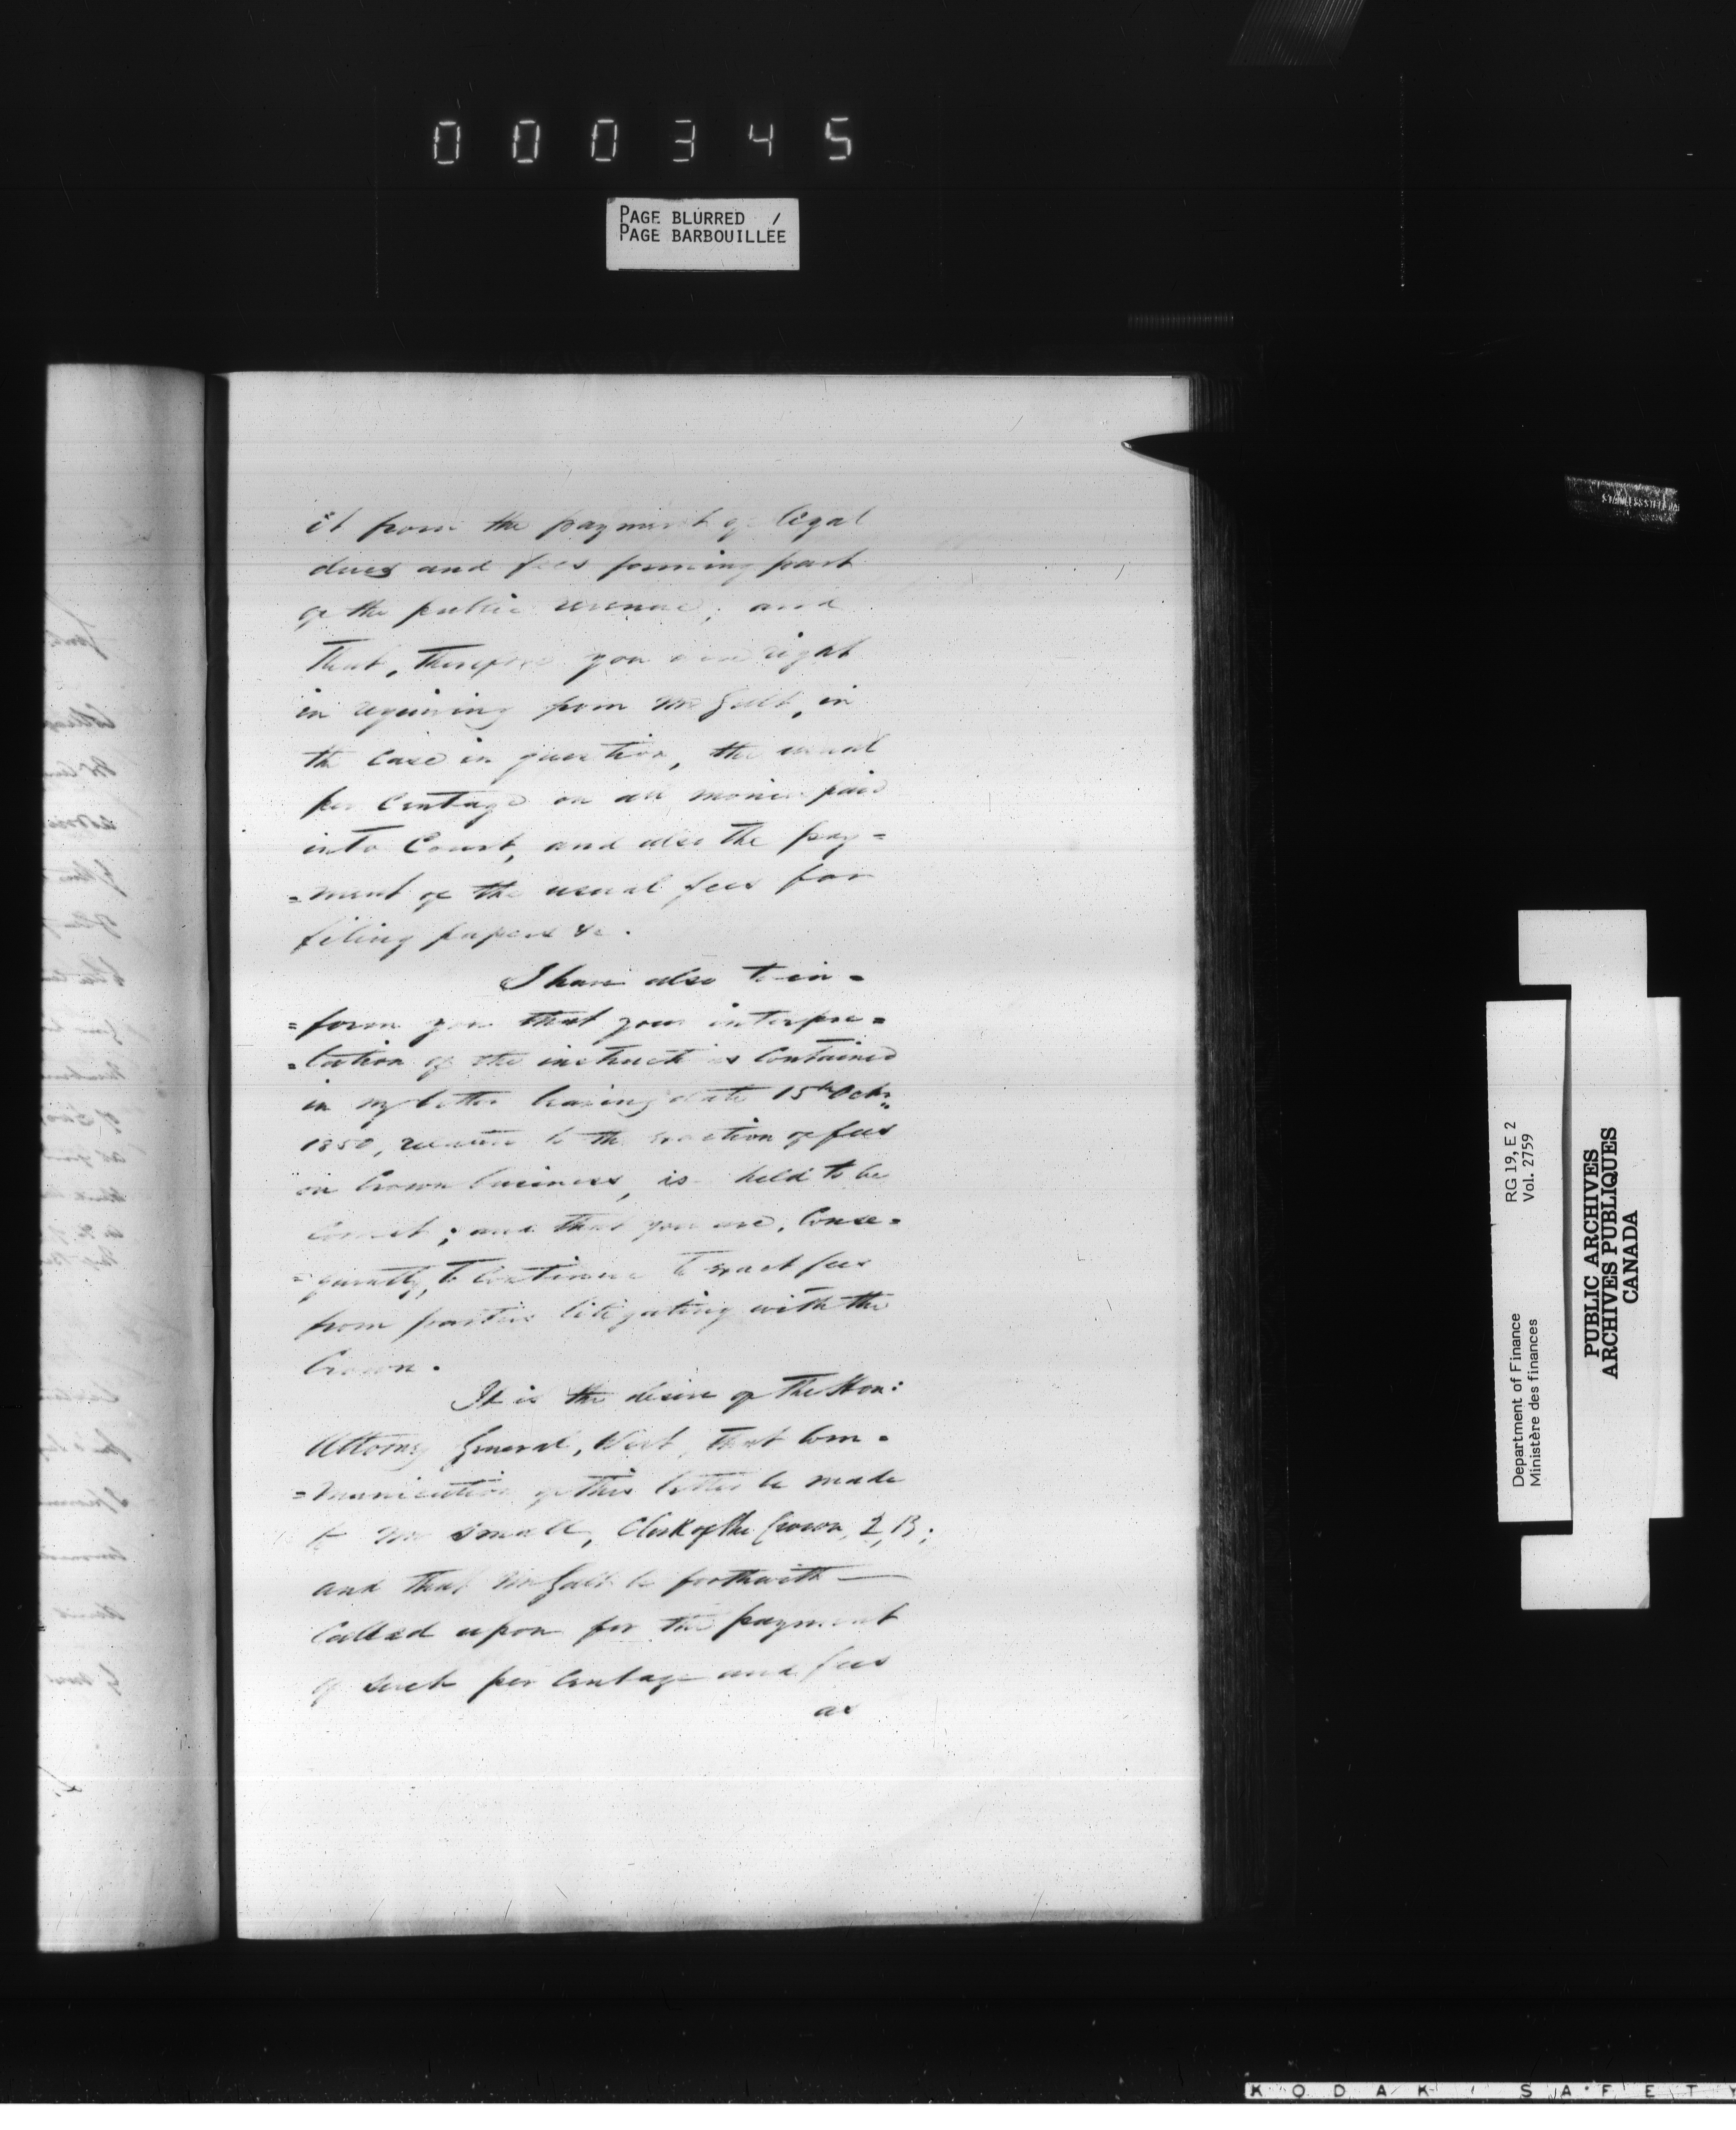 000345
PAGE BLURRED /
PAGE BARBOUILLÉE
it from the payment of legal
dues and fees forming part
of the public revenue; and
that, therefore you were right
in requiring from Mr Galt, in
the Case in question, the usual
per Centage on all monies paid
into Court, and also the pay=
=ment of the usual fees for
filing papers &c.
I have also to in=
=form you that your interpre=
=tation of the instructions Contained
in my letter bearing date 15th Octr.
1850, relative to the exaction of fees
in Crown business, is held to be
Correct; and that you are, Conse=
=quently, to Continue to exact fees
from parties litigating with the
Crown.
It is the desire of The Hon:
Attorney General, West, that Com=
=munication of this letter be made
to Mr Small, Clerk of the Crown, Q,B;
and that Mr Galt be forthwith —
Called upon for the payment
of such per Centage and fees
as
Department of Finance RG 19, E 2
Ministère des finances Vol. 2759
PUBLIC ARCHIVES
ARCHIVES PUBLIQUES
CANADA
KODAK SAFETY